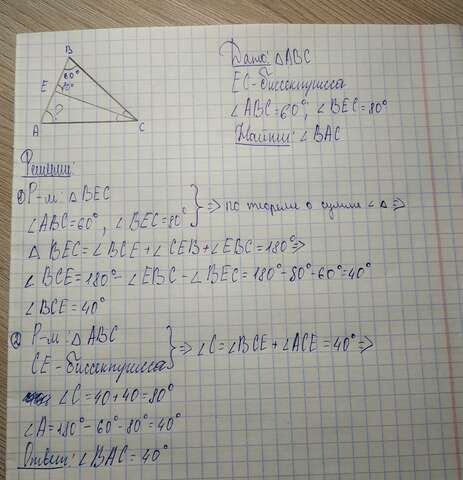 B
60°
E 80°
?
A C
Дано: △ABC
EC-биссектрисса
∠ABC=60°, ∠BEC=80°
Найти: ∠BAC
Решение:
① Р-м: △BEC
∠ABC=60°, ∠BEC=80° } => по теореме о сумме ∠△ =>
△ BEC=∠BCE+∠CEB+∠EBC=180° =>
∠BCE=180°-∠EBC-∠BEC=180°-80°-60°=40°
∠BCE=40°
② Р-м: △ABC
CE-биссектрисса } => ∠C=∠BCE+∠ACE=40° =>
∠C=40+40=80°
∠A=180°-60°-80°=40°
Ответ: ∠BAC=40°